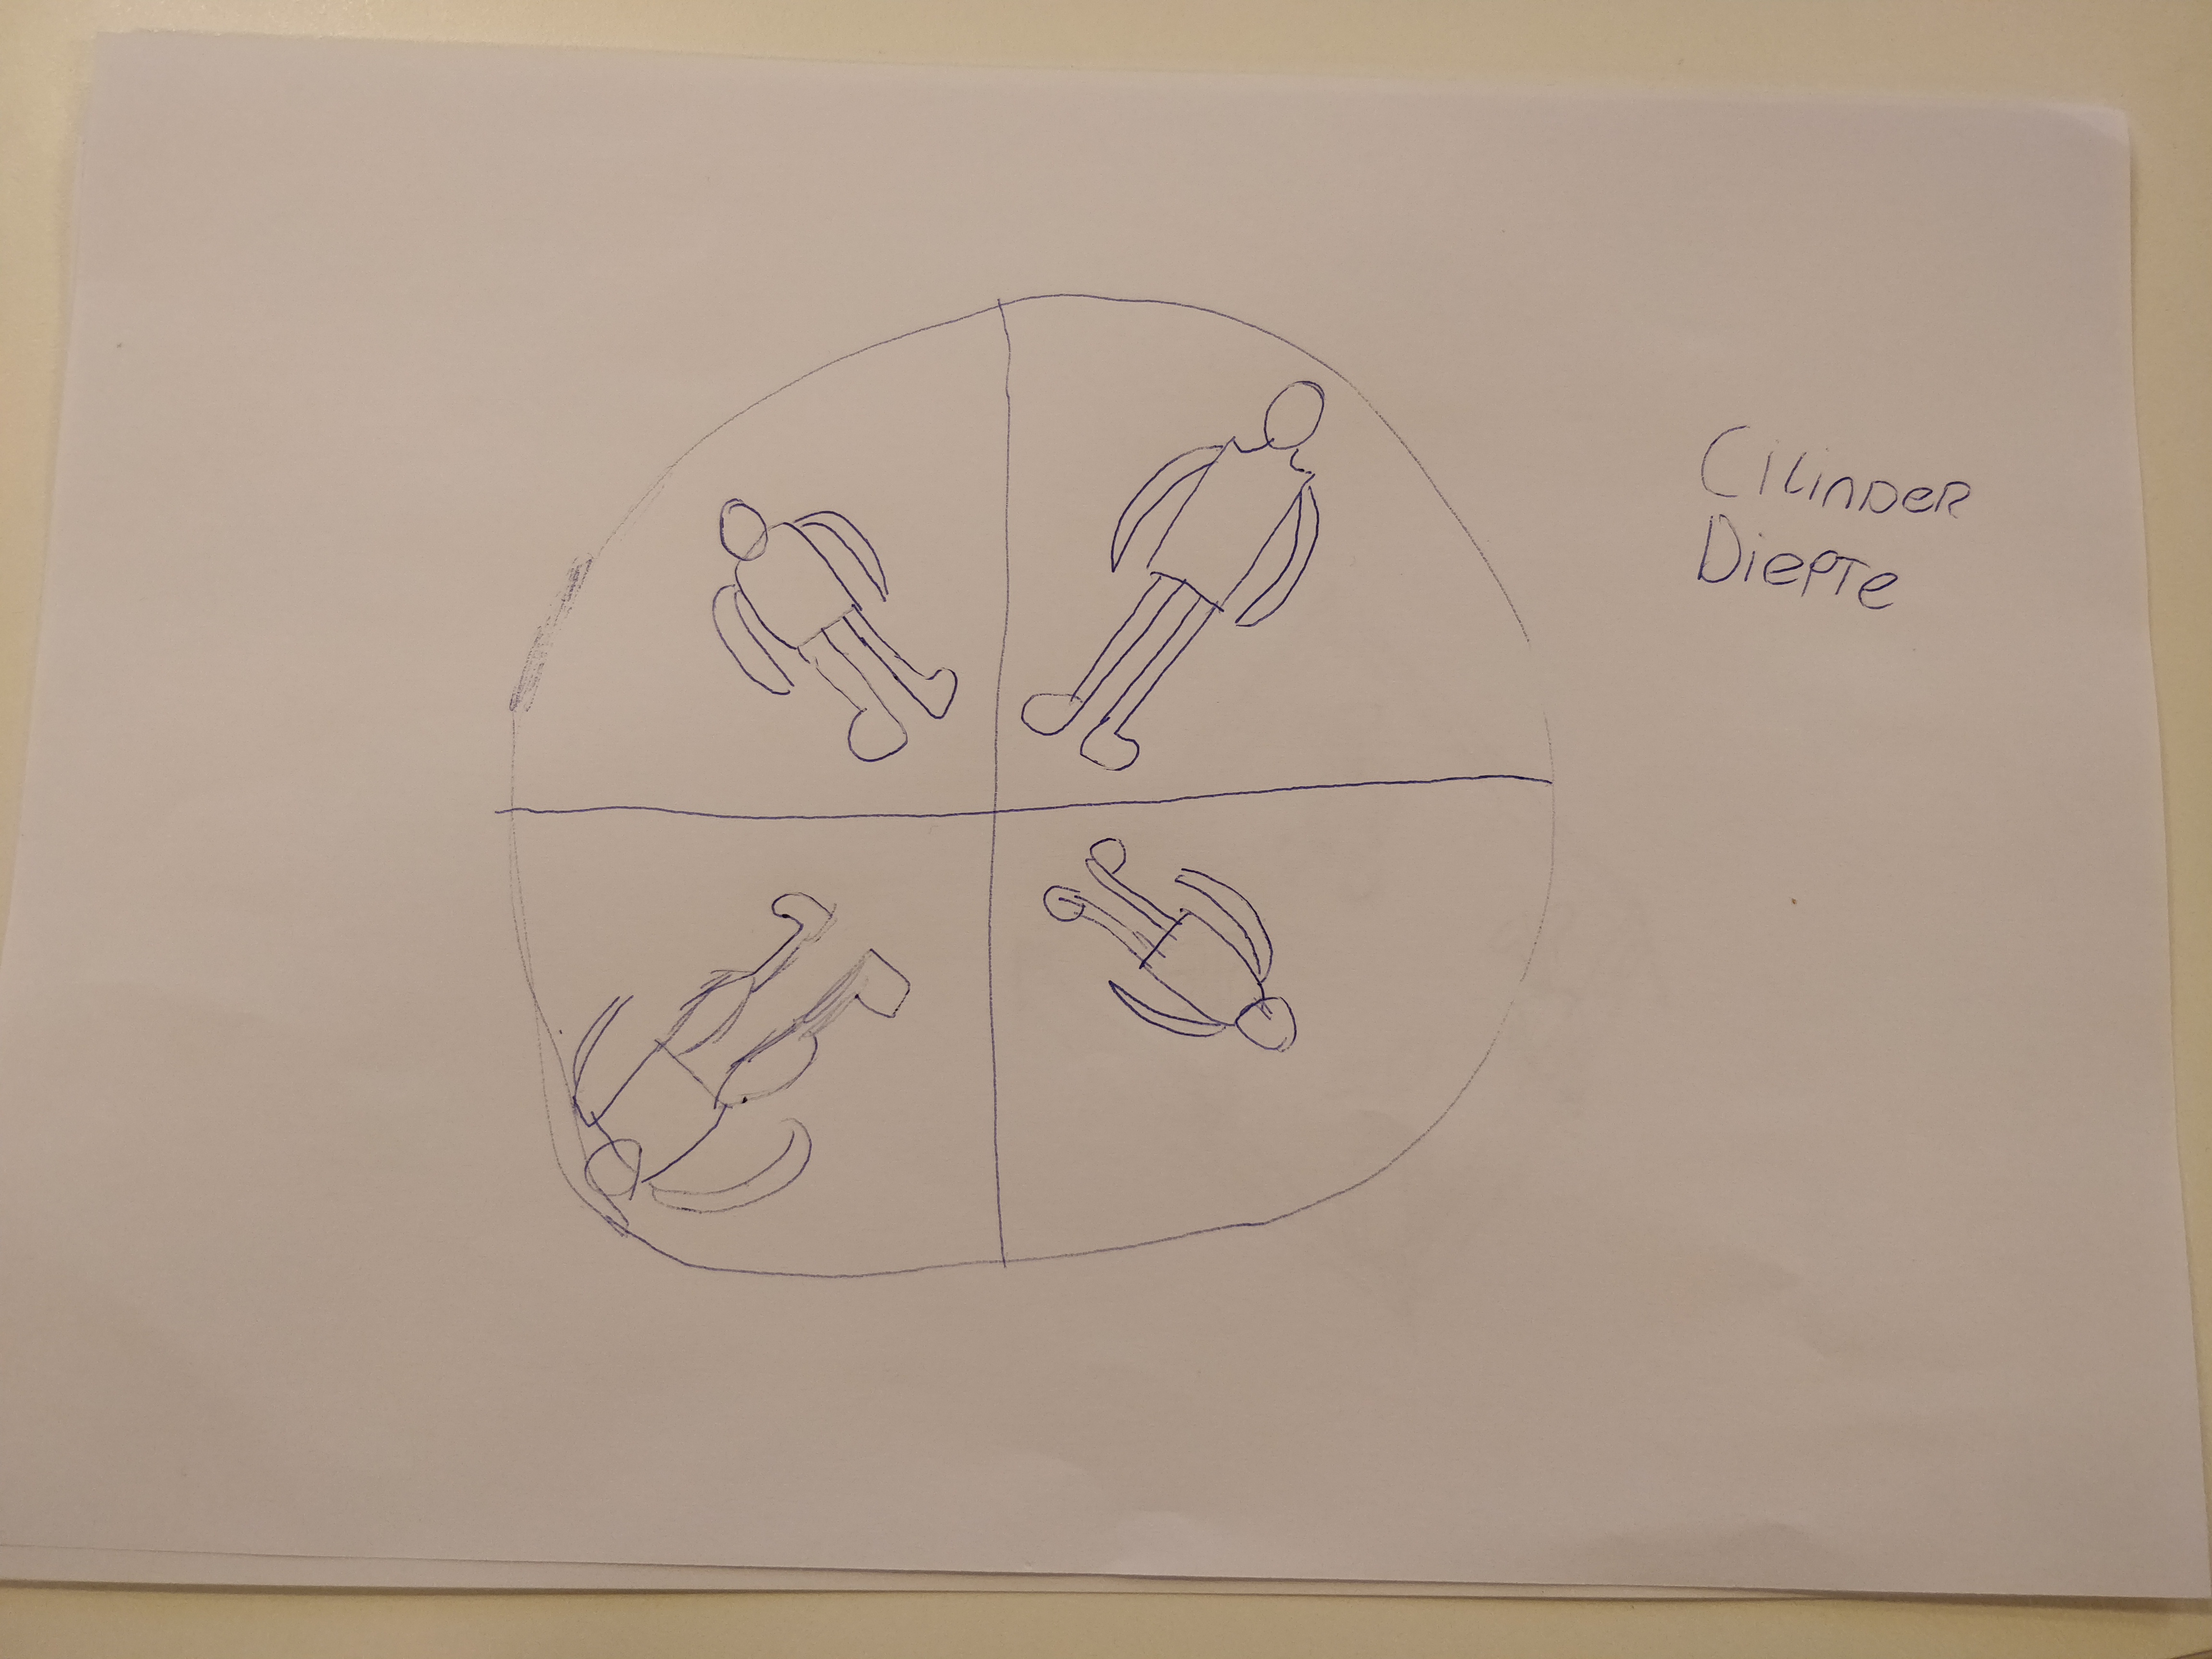 Cilinder
Diepte